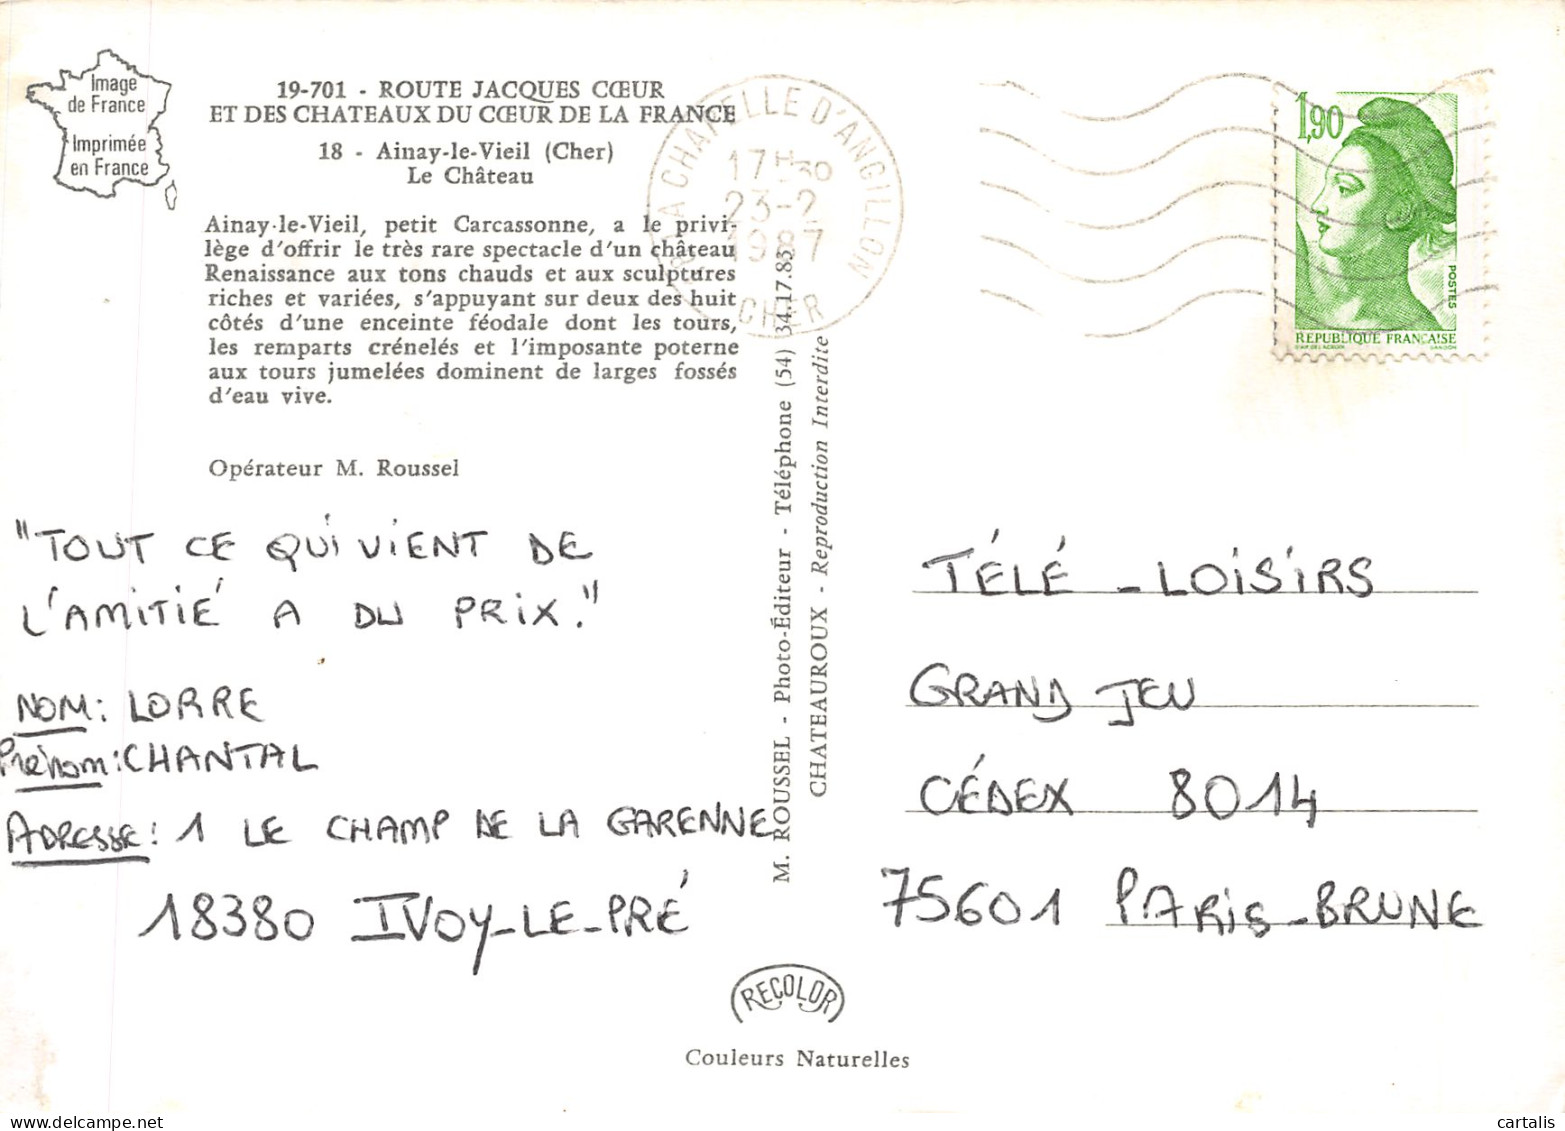 Image
de France
Imprimée
en France
19-701 - ROUTE JACQUES CŒUR
ET DES CHATEAUX DU CŒUR DE LA FRANCE
18 - Ainay-le-Vieil (Cher)
Le Château
Ainay-le-Vieil, petit Carcassonne, a le privi-
lège d'offrir le très rare spectacle d'un château
Renaissance aux tons chauds et aux sculptures
riches et variées, s'appuyant sur deux des huit
côtés d'une enceinte féodale dont les tours,
les remparts crénelés et l'imposante poterne
aux tours jumelées dominent de larges fossés
d'eau vive.
Opérateur M. Roussel
"TOUT CE QUI VIENT DE
L'AMITIÉ A DU PRIX."
NOM: LORRE
Prénom: CHANTAL
ADRESSE: 1 LE CHAMP DE LA GARENNE
18380 IVOY-LE-PRÉ
M. ROUSSEL - Photo-Éditeur - Téléphone (54) 34.17.85
CHATEAUROUX - Reproduction Interdite
LA CHAPELLE D'ANGILLON
17H30
23-2
1987
CHER
1,90
POSTES
REPUBLIQUE FRANÇAISE
TÉLÉ - LOISIRS
GRAND JEU
CÉDEX 8014
75601 PARIS-BRUNE
RECOLOR
Couleurs Naturelles
cartalis